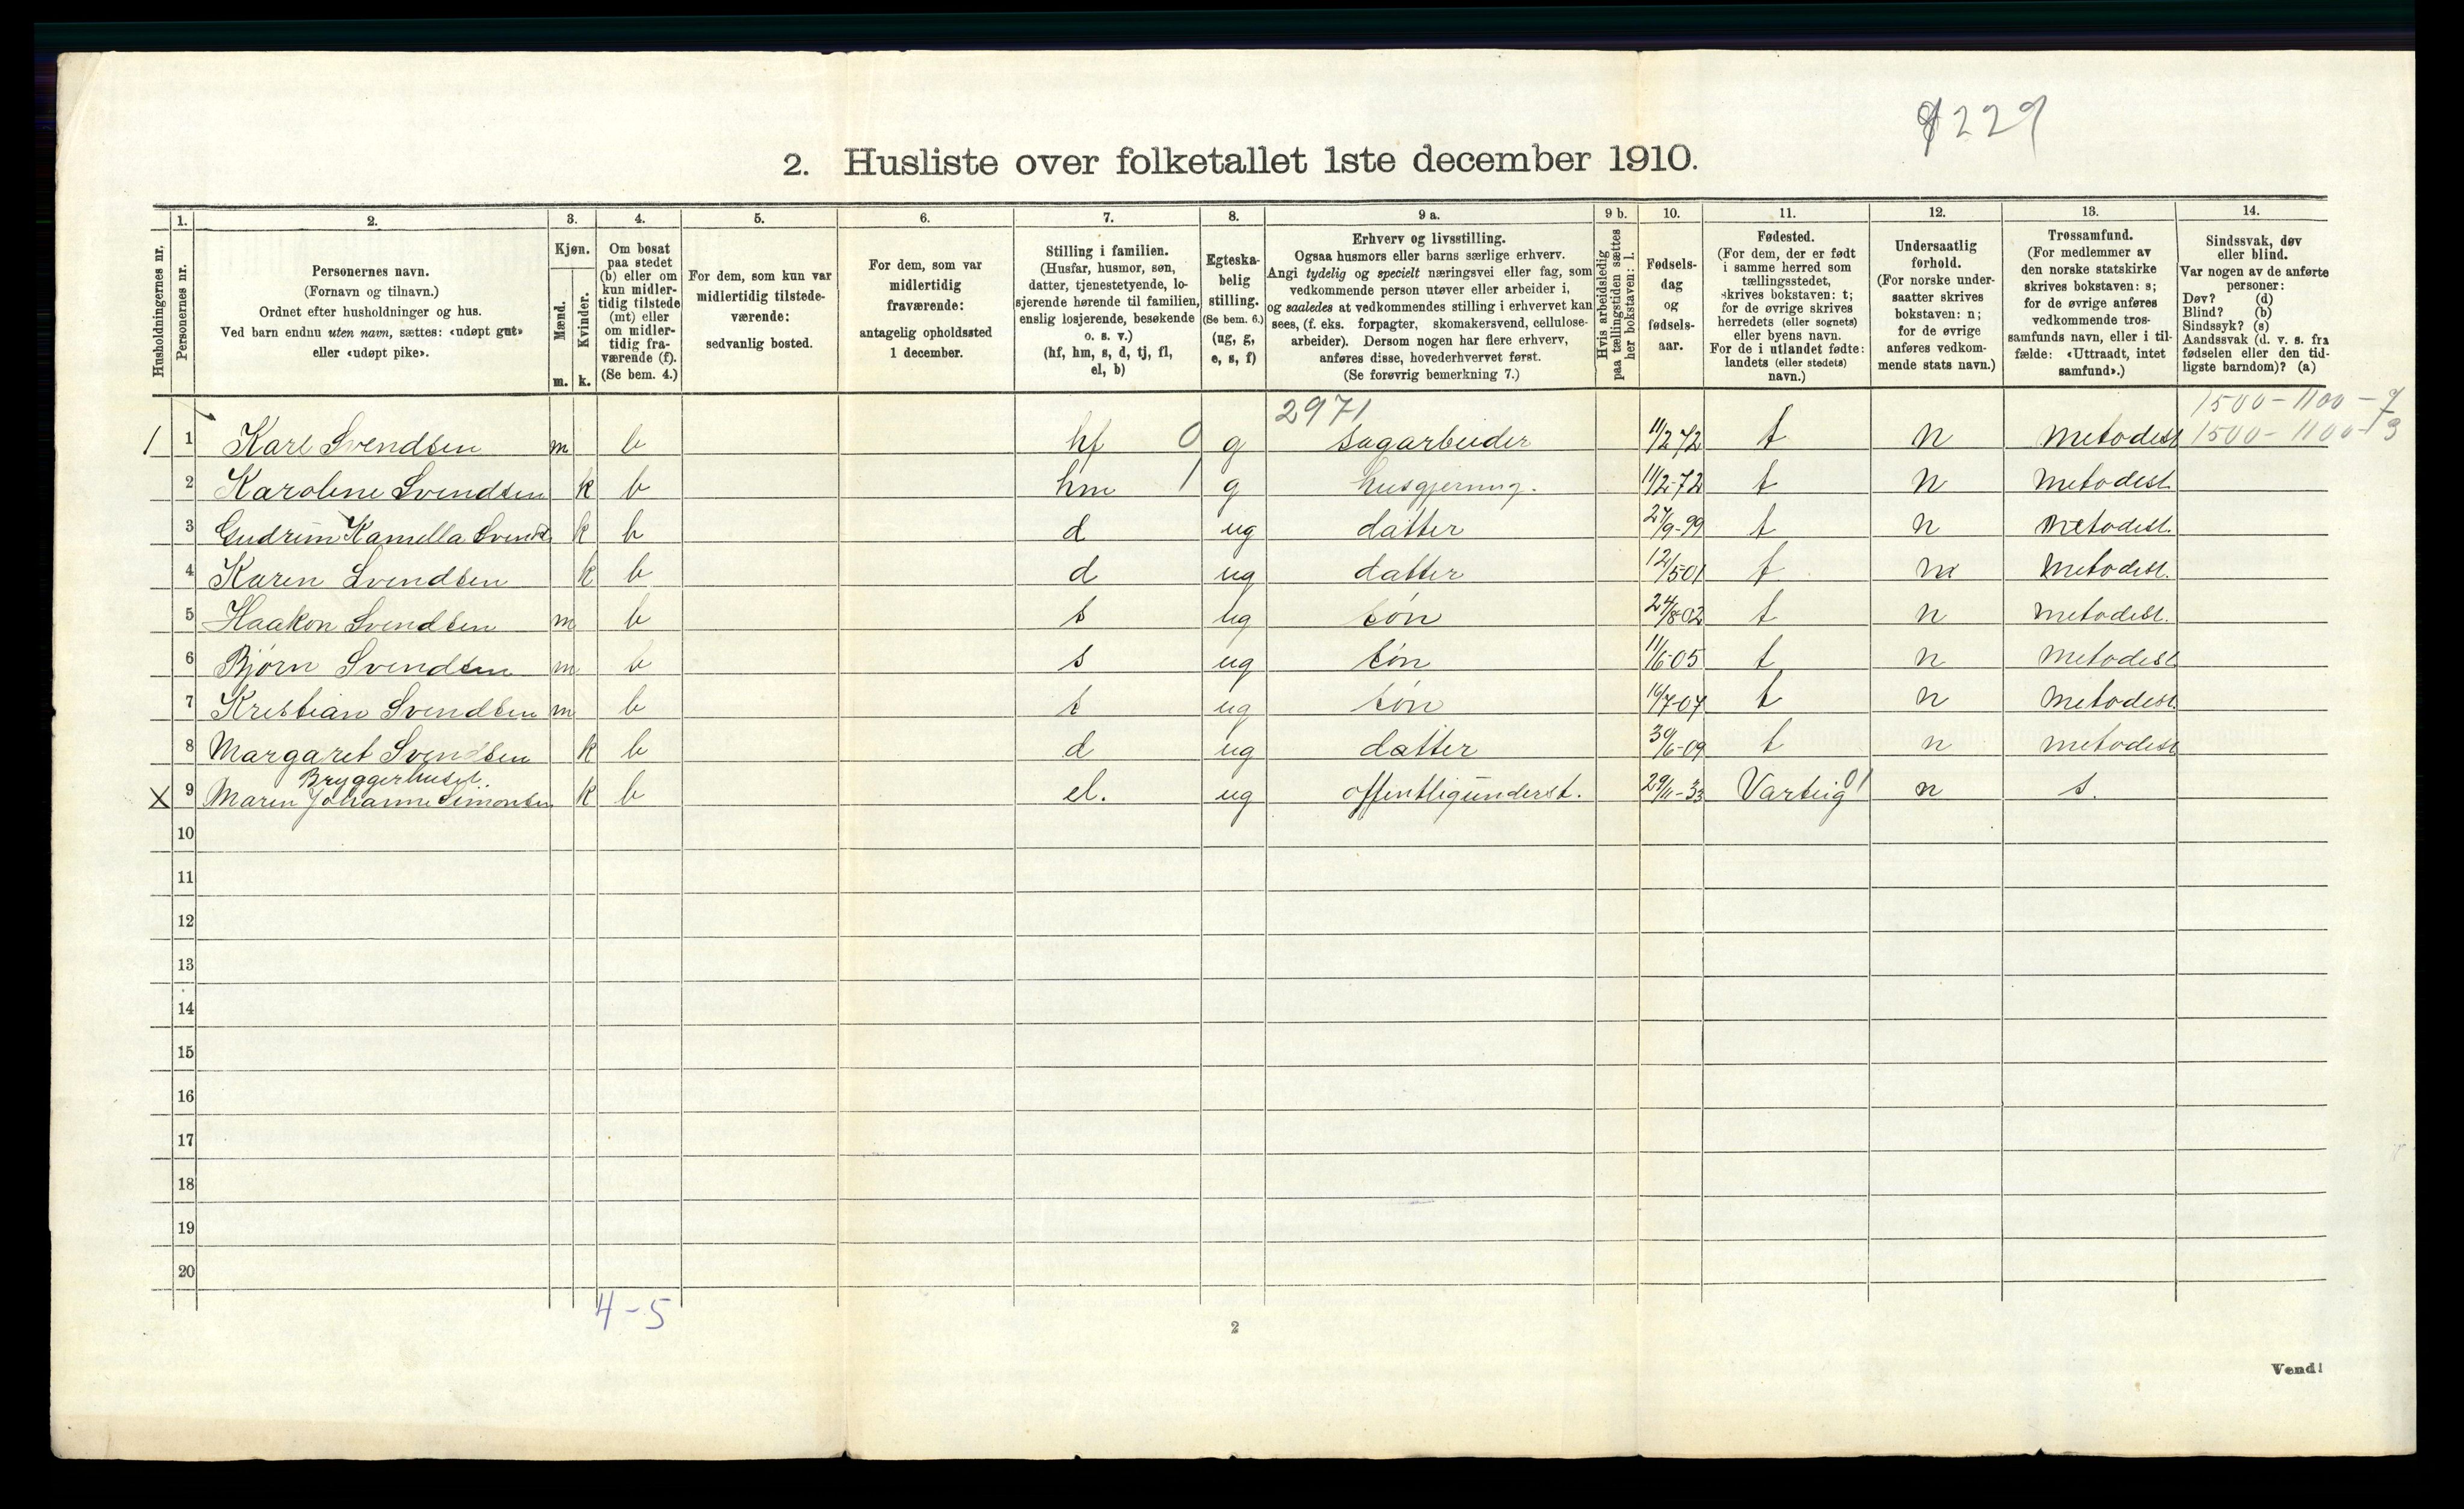 229
2. Husliste over folketallet 1ste december 1910.
Husholdningernes nr.
1.
Personernes nr.
2.
Personernes navn.
(Fornavn og tilnavn.)
Ordnet efter husholdninger og hus.
Ved barn endnu uten navn, sættes: «udøpt gut»
eller «udøpt pike».
3.
Kjøn.
Mænd.
Kvinder.
m. k.
4.
Om bosat
paa stedet
(b) eller om
kun midler-
tidig tilstede
(mt) eller
om midler-
tidig fra-
værende (f).
(Se bem. 4.)
5.
For dem, som kun var
midlertidig tilstede-
værende:
sedvanlig bosted.
6.
For dem, som var
midlertidig
fraværende:
antagelig opholdssted
1 december.
7.
Stilling i familien.
(Husfar, husmor, søn,
datter, tjenestetyende, lo-
sjerende hørende til familien,
enslig losjerende, besøkende
o. s. v.)
(hf, hm, s, d, tj, fl,
el, b)
8.
Egteska-
belig
stilling.
(Se bem. 6.)
(ug, g,
e, s, f)
9 a.
Erhverv og livsstilling.
Ogsaa husmors eller barns særlige erhverv.
Angi tydelig og specielt næringsvei eller fag, som
vedkommende person utøver eller arbeider i,
og saaledes at vedkommendes stilling i erhvervet kan
sees, (f. eks. forpagter, skomakersvend, cellulose-
arbeider). Dersom nogen har flere erhverv,
anføres disse, hovederhvervet først.
(Se forøvrig bemerkning 7.)
9 b.
Hvis arbeidsledig
paa tællingstiden sættes
her bokstaven: l.
10.
Fødsels-
dag
og
fødsels-
aar.
11.
Fødested.
(For dem, der er født
i samme herred som
tællingsstedet,
skrives bokstaven: t;
for de øvrige skrives
herredets (eller sognets)
eller byens navn.
For de i utlandet fødte:
landets (eller stedets)
navn.)
12.
Undersaatlig
forhold.
(For norske under-
saatter skrives
bokstaven: n;
for de øvrige
anføres vedkom-
mende stats navn.)
13.
Trossamfund.
(For medlemmer av
den norske statskirke
skrives bokstaven: s;
for de øvrige anføres
vedkommende tros-
samfunds navn, eller i til-
fælde: «Uttraadt, intet
samfund».)
14.
Sindssvak, døv
eller blind.
Var nogen av de anførte
personer:
Døv? (d)
Blind? (b)
Sindssyk? (s)
Aandssvak (d. v. s. fra
fødselen eller den tid-
ligste barndom)? (a)
2971 1500-1100-7
1 1 Karl Svendsen m b hf 0 g sagarbeider 11/2 72 t n Metodist 1500-1100-13
2 Karoline Svendsen k b hm 1 g husgjerning. 11/2-72 t n Metodist
3 Gudrun Kamilla Svends k b d ug datter 27/9-99 t n Metodist.
4 Karen Svendsen k b d ug datter 12/5 01 t n Metodist.
5 Haakon Svendsen m b s ug søn 24/8-02 t n Metodist.
6 Bjørn Svendsen m b s ug søn 11/6-05 t n Metodist
7 Kristian Svendsen m b s ug søn 16/7-07 t n Metodist
8 Margaret Svendsen k b d ug datter 30/6-09 t n metodist
Bryggerhuset
X 9 Maren Johanne Simonsen k b el. ug offentligunderst. 29/11-33 Varteig 01 n s.
10
11
12
13
14
15
16
17
18
19
20
4-5
2
Vend!